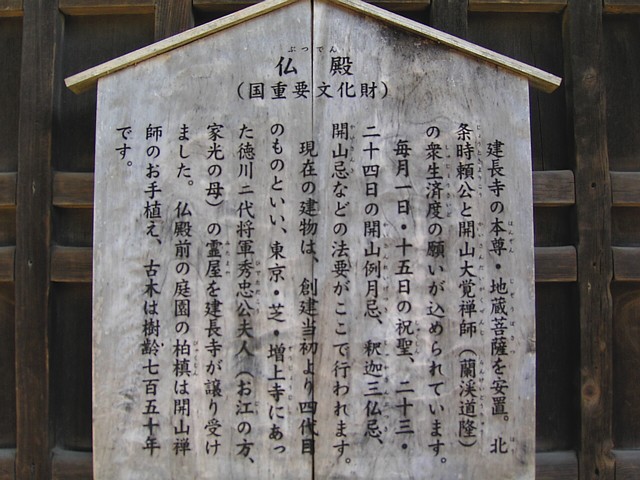 仏殿
(国重要文化財)
建長寺の本尊・地蔵菩薩を安置。北
条時頼公と開山大覚禅師(蘭渓道隆)
の衆生済度の願いが込められています。
毎月一日・十五日の祝聖、二十三・
二十四日の開山例月忌、釈迦三仏忌、
開山忌などの法要がここで行われます。
現在の建物は、創建当初より四代目
のものといい、東京・芝・増上寺にあっ
た徳川二代将軍秀忠公夫人(お江の方、
家光の母)の霊屋を建長寺が譲り受け
ました。仏殿前の庭園の柏槙は開山禅
師のお手植え、古木は樹齢七百五十年
です。